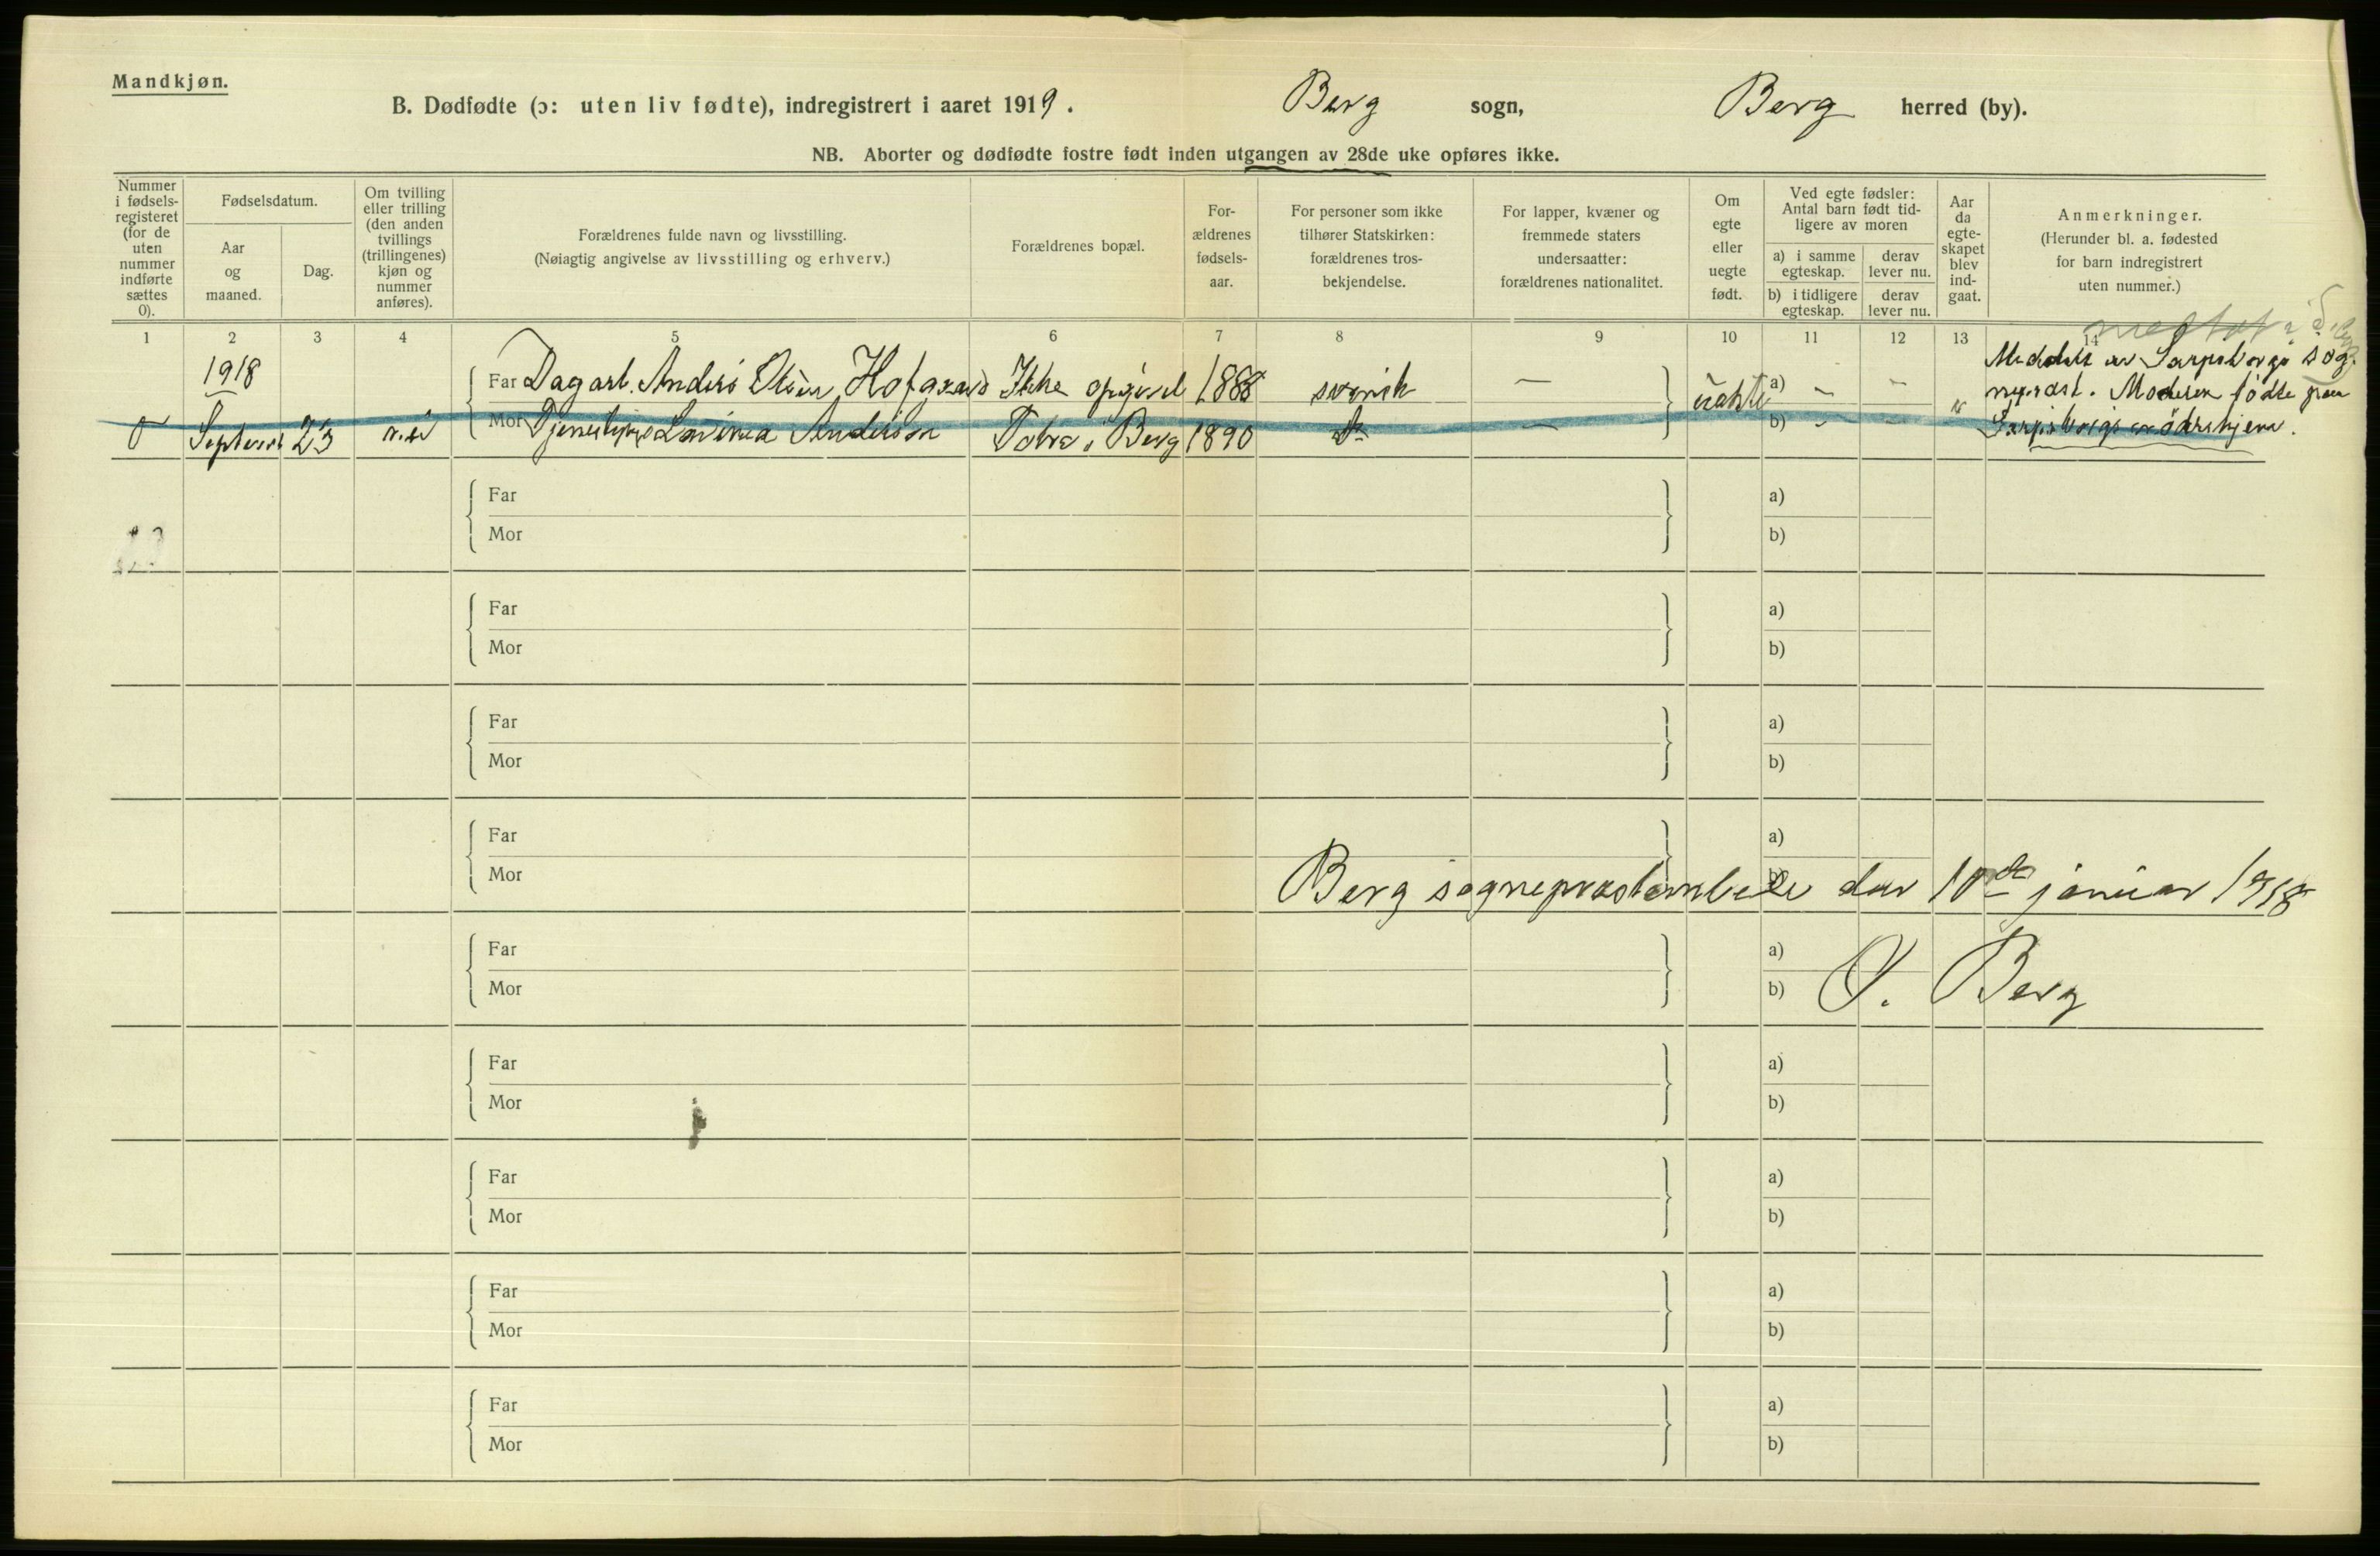 Mandkjøn.
B. Dødfødte (ɔ: uten liv fødte), indregistrert i aaret 1919. Berg sogn, Berg herred (by).
NB. Aborter og dødfødte fostre født inden utgangen av 28de uke opføres ikke.
Nummer i fødsels-registeret (for de uten nummer indførte sættes 0).
Fødselsdatum.
Aar og maaned.
Dag.
Om tvilling eller trilling (den anden tvillings (trillingenes) kjøn og nummer anføres).
Forældrenes fulde navn og livsstilling.
(Nøiagtig angivelse av livsstilling og erhverv.)
Forældrenes bopæl.
For-ældrenes fødsels-aar.
For personer som ikke tilhører Statskirken: forældrenes tros-bekjendelse.
For lapper, kvæner og fremmede staters undersaatter: forældrenes nationalitet.
Om egte eller uegte født.
Ved egte fødsler: Antal barn født tid-ligere av moren
a) i samme egteskap.
derav lever nu.
b) i tidligere egteskap.
derav lever nu.
Aar da egte-skapet blev ind-gaat.
Anmerkninger.
(Herunder bl. a. fødested for barn indregistrert uten nummer.)
1 2 3 4 5 6 7 8 9 10 11 12 13 14
1918
Far Dagarb. Anders Ikke opgivet 1888 svensk — uækte a) – –
0 Septembr 23 nei Mor Lovinea Anderson i Berg 1890 — b) – –
Meddelt av Sarpsborgs sog-
neprest. Moderen fødte paa
Sarpsborgs mödrehjem.
Far a)
Mor b)
Far a)
Mor b)
Far a)
Mor b)
Far a)
Mor b)
Berg sogneprestembede den 10de januar 1918
Far a)
Mor b)
O. Berg
Far a)
Mor b)
Far a)
Mor b)
Far a)
Mor b)
Far a)
Mor b)